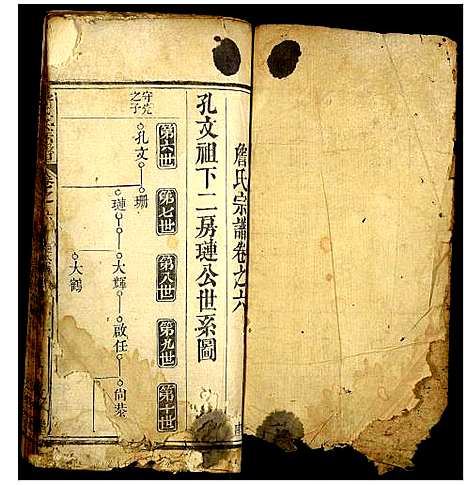 詹氏宗譜卷之六
孔文祖下二房璉公世系圖
第六世
第七世
第八世
第九世
第十世
守荒之子
孔文
珊
璉
大輝
啟任
尚棊
大鶴